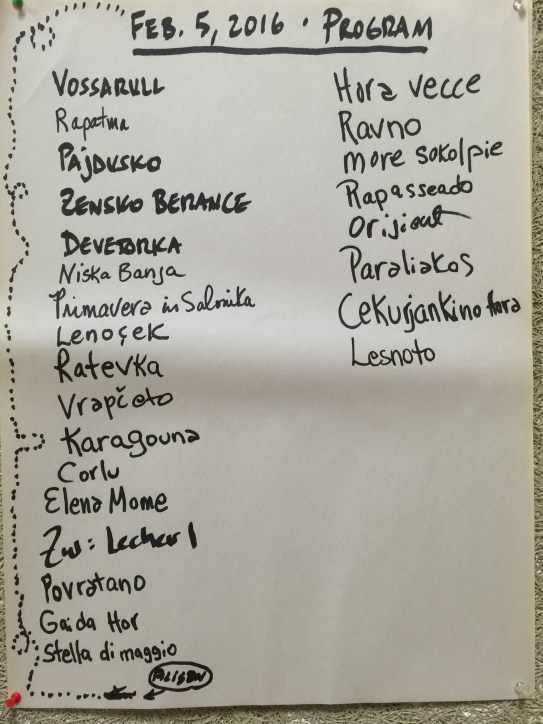 FEB. 5, 2016 · PROGRAM
VOSSARULL
Rapatma
PAJDUSKO
ZENSKO BERANCE
DEVETORKA
Niska Banja
Primavera in Salonika
Lenoçek
Ratevka
Vrapčeto
Karagouna
Corlu
Elena Mome
Zw: Lecher 1
Povratano
Gaida Hor
Stella di maggio
ALISEN
Hora vecce
Ravno
more sokolpie
Rapasseado
Orijient
Paraliakos
Cekurjankino hora
Lesnoto